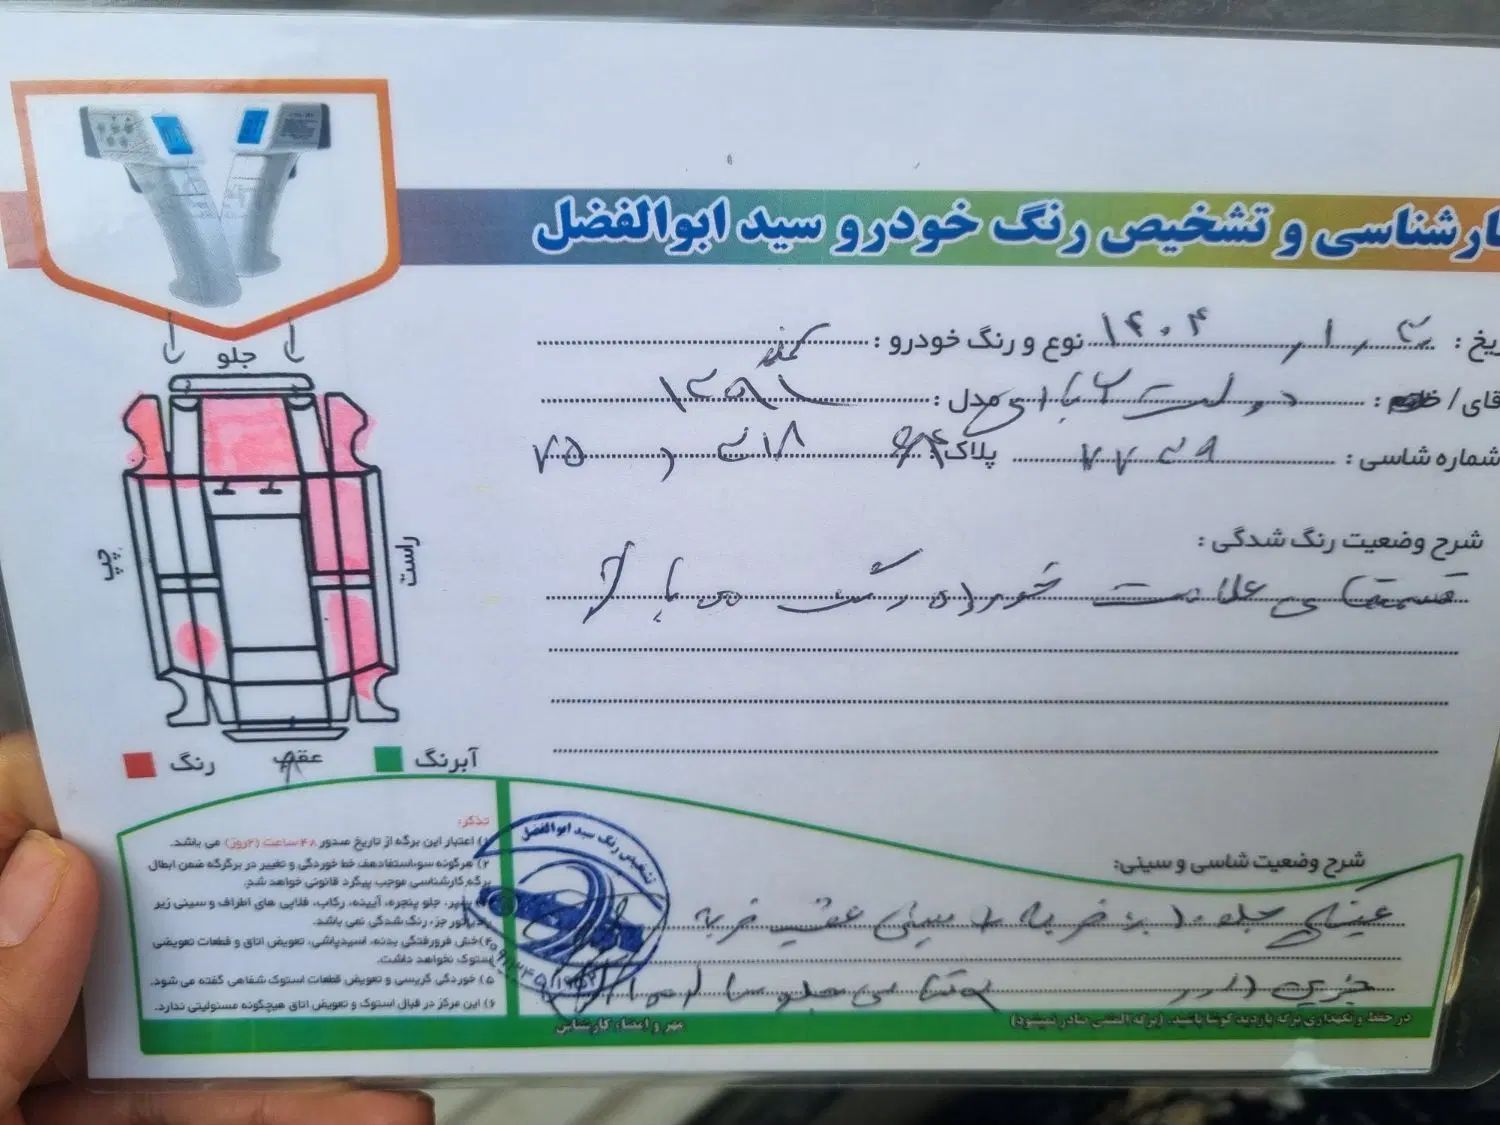 ارشناسی و تشخیص رنگ خودرو سید ابوالفضل
ریخ : ۳ / ۱ / ۱۴۰۴ نوع و رنگ خودرو : سمند
قای / : دولت آبادی مدل : ۱۳۹۸
شماره شاسی : ۷۷۳۹ پلاک : ۷۵
شرح وضعیت رنگ شدگی :
قسمتهای علامت خورده رنگ می باشد
جلو
چپ
راست
عقب
رنگ
آبرنگ
تذکر:
۱) اعتبار این برگه از تاریخ صدور ۴۸ ساعت (۲روز) می باشد.
۲) هرگونه سوءاستفاده خط خوردگی و تغییر در برگه ضمن ابطال
برگه کارشناسی موجب پیگرد قانونی خواهد شد.
سپر، جلو پنجره، آیینه، رکاب، قلابی های اطراف و سینی زیر
جزء رنگ شدگی نمی باشد.
۴) خش فرورفتگی بدنه، اسیدپاشی، تعویض اتاق و قطعات تعویضی
استوک نخواهد داشت.
۵) خوردگی گریسی و تعویض قطعات استوک شفاهی گفته می شود.
۶) این مرکز در قبال استوک و تعویض اتاق هیچگونه مسئولیتی ندارد.
تشخیص رنگ سید ابوالفضل
شرح وضعیت شاسی و سینی:
سینی جلو ضربه سینی عقب ضربه
جلو
مهر و امضاء کارشناس
در حفظ و نگهداری برگه بازدید کوشا باشید. (برگه المثنی صادر نمیشود)